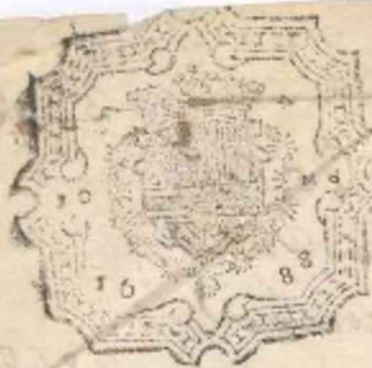 10 Ms
16 88